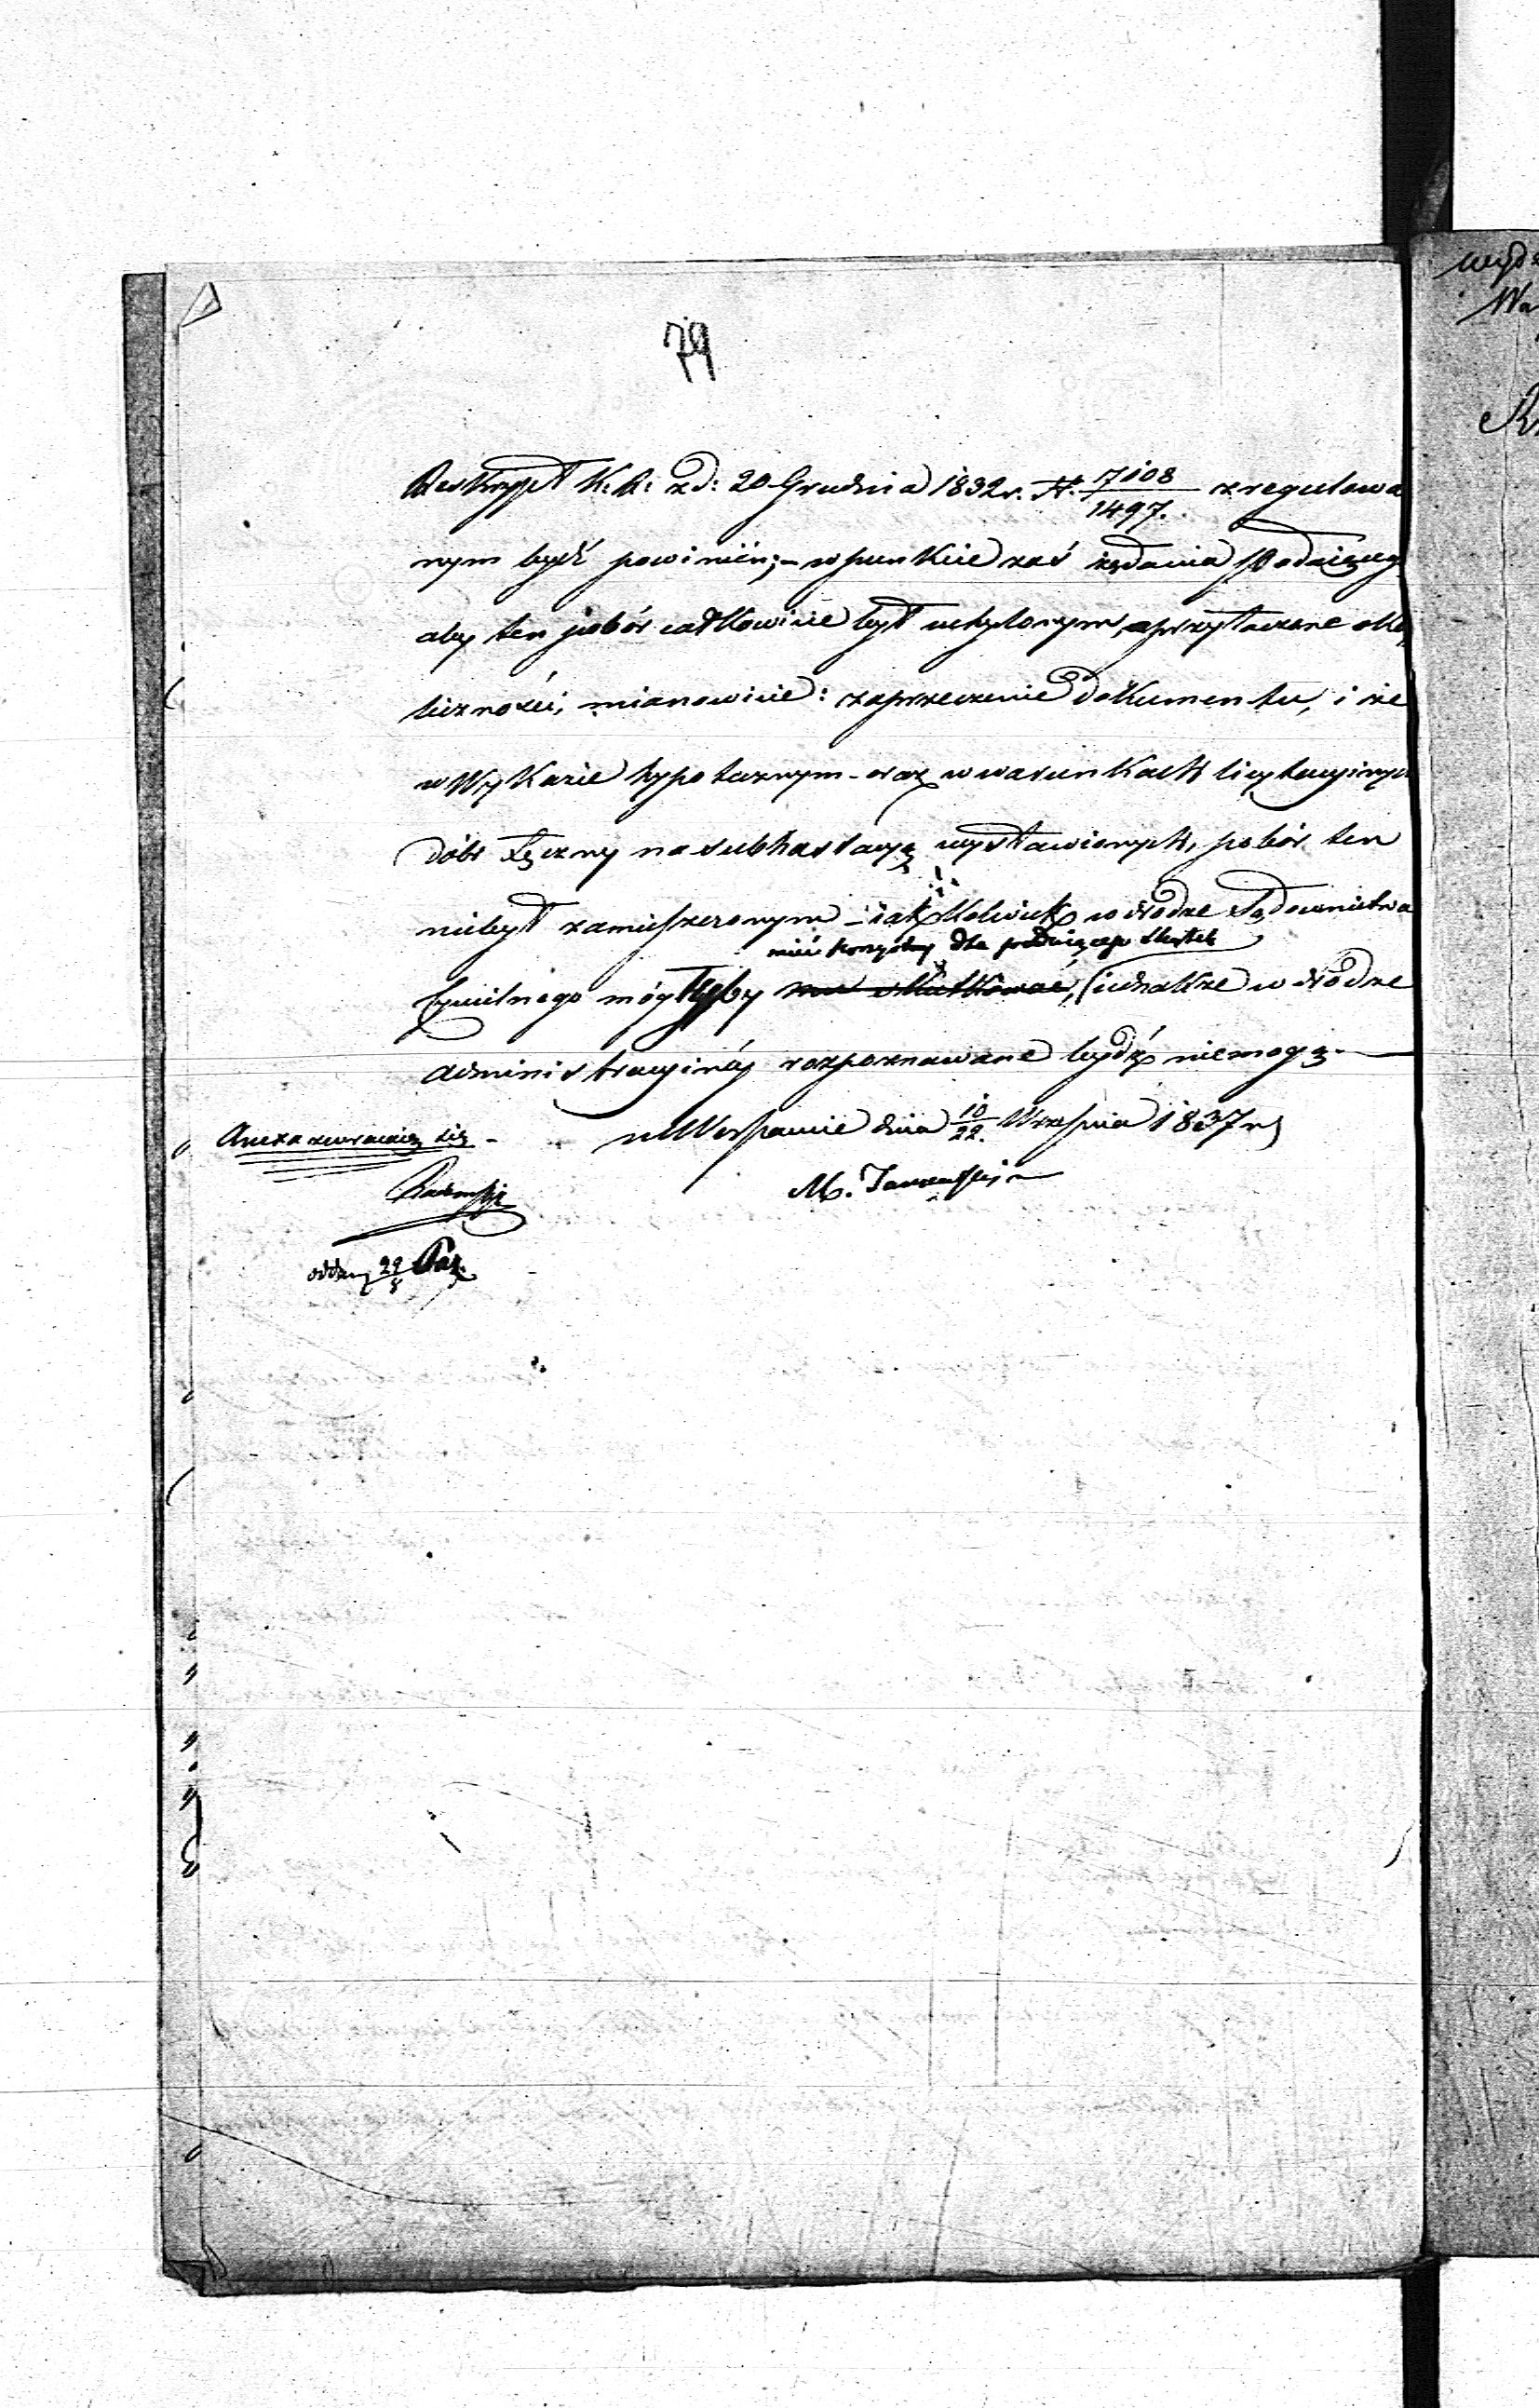 79
Reskrypt K: R: z d: 20 Grudnia 1832 r. N. 7108/1497. zregulowa
nym bydź powinien; - w punkcie zaś żądania
aby ten pobór całkowicie był uchylonym, a przytaczane oko
liczności, mianowicie: zaprzeczenie dokumentu, i że
w Wykazie hypotecznym - oraz w warunkach licytacyinych
dóbr Łęczny na subhastacyę wystawionych, pobór ten
niebył zamieszczonym - iakkolwiek w drodze Sądownictwa
mieć korzystny dla skutek
Cywilnego mógłyby skutkować, iednakże w drodze
administracyinéy rozpoznawane bydź niemogą. -
w Warszawie dnia 10/22. Września 1837 r
Anexa zwracaią się -
M.
oddany 29/8